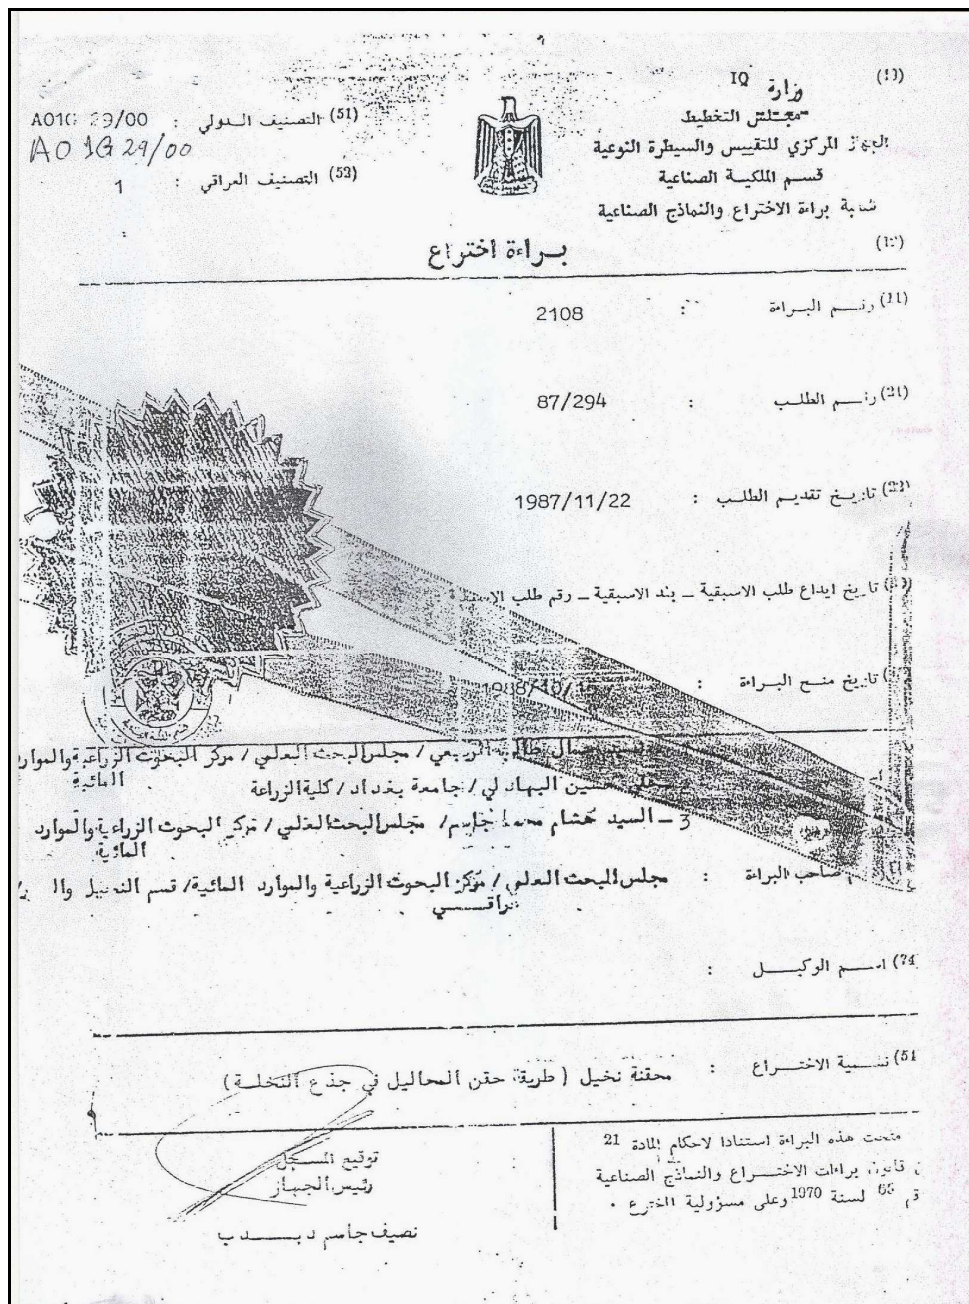 (10) IQ وزارة
مجلس التخطيط
الجهاز المركزي للتقييس والسيطرة النوعية
قسم الملكية الصناعية
شعبة براءة الاختراع والنماذج الصناعية
(51) التصنيف الدولي : A01G 29/00
A01G29/00
(52) التصنيف العراقي : 1
:
(12)
بــراءة اختراع
(11) رقــم البــراءة : 2108
(21) رقــم الطلــب : 87/294
(22) تاريخ تقديم الطلــب : 1987/11/22
تاريخ ايداع طلب الاسبقية ــ بلد الاسبقية ــ رقم طلب
تاريخ منــح البــراءة : 1988/10/
الربيعي / مجلس البحث العلمي / مركز البحوث الزراعية والموارد
المائية
حسين البهادلي / جامعة بغداد / كلية الزراعة
3 ــ السيد هشام محمد جاسم / مجلس البحث العلمي / مركز البحوث الزراعية والموارد
المائية
صاحب البراءة : مجلس البحث العلمي / مركز البحوث الزراعية والموارد المائية / قسم النخيل وال
(74) اســم الوكيــــل :
(54) تســمية الاختــراع : محقنة نخيل ( طريقة حقن المحاليل في جذع النخلــة )
منحت هذه البراءة استنادا لاحكام المادة 21
قانون براءات الاختــراع والنماذج الصناعية
65 لسنة 1970 وعلى مسؤولية المخترع .
توقيع المسجل
رئيس الجهاز
نصيف جاسم